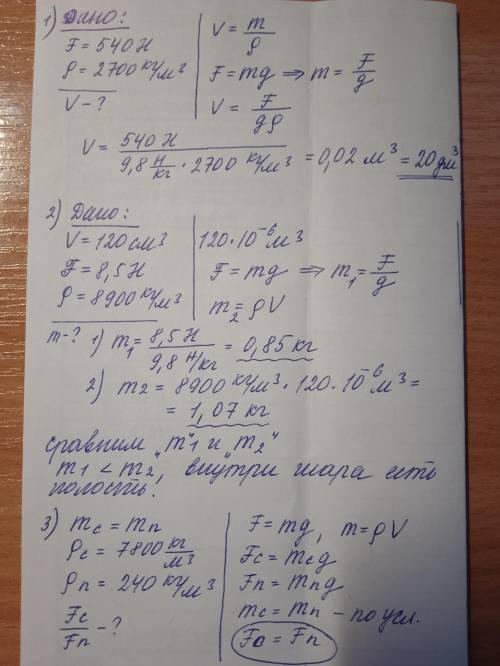 1) Дано:
F = 540 Н
ρ = 2700 кг/м³
V - ?
V = m/ρ
F = mg ⇒ m = F/g
V = F/gρ
V = 540 Н / 9,8 Н/кг · 2700 кг/м³ = 0,02 м³ = 20 дм³
2) Дано:
V = 120 см³
F = 8,5 Н
ρ = 8900 кг/м³
m - ?
120·10⁻⁶ м³
F = mg ⇒ m₁ = F/g
m₂ = ρV
1) m₁ = 8,5 Н / 9,8 Н/кг = 0,85 кг
2) m₂ = 8900 кг/м³ · 120·10⁻⁶ м³ =
= 1,07 кг
сравним „m₁" и „m₂"
m₁ < m₂, внутри шара есть
полость.
3) mс = mп
ρс = 7800 кг/м³
ρп = 240 кг/м³
Fс/Fп - ?
F = mg, m = ρV
Fс = mсg
Fп = mпg
mс = mп – по усл.
Fс = Fп